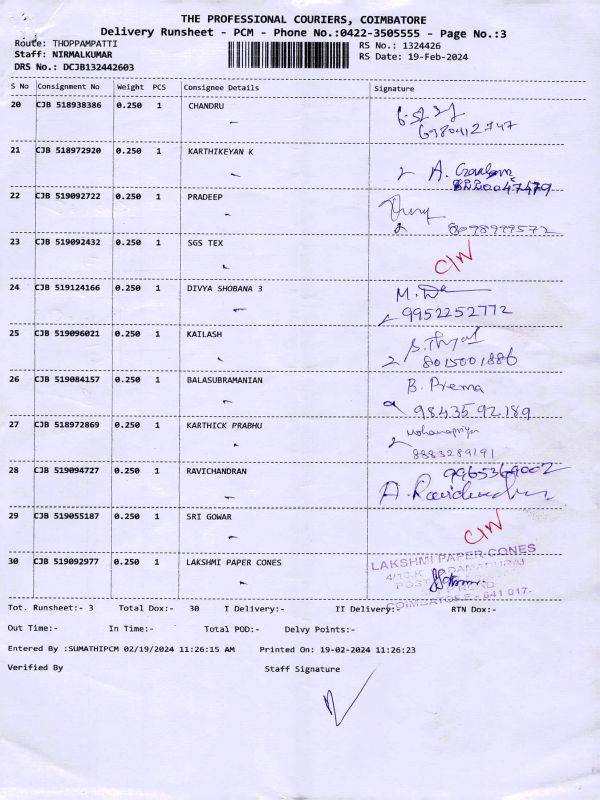 THE PROFESSIONAL COURIERS, COIMBATORE
Delivery Runsheet - PCM - Phone No.:0422-3505555 - Page No.:3
Route: THOPPAMPATTI
RS No.: 1324426
Staff: NIRMALKUMAR
RS Date: 19-Feb-2024
DRS No.: DCJB132442603
S No Consignment No Weight PCS Consignee Details Signature
20 CJB 518938386 0.250 1 CHANDRU
6980412747
21 CJB 518972920 0.250 1 KARTHIKEYAN K
A.
22 CJB 519092722 0.250 1 PRADEEP
23 CJB 519092432 0.250 1 SGS TEX
C/N
24 CJB 519124166 0.250 1 DIVYA SHOBANA 3
M.
9952252772
25 CJB 519096021 0.250 1 KAILASH
8015001886
26 CJB 519084157 0.250 1 BALASUBRAMANIAN
B. Prema
9843592189
27 CJB 518972869 0.250 1 KARTHICK PRABHU
Mohanapriya
8883289191
28 CJB 519094727 0.250 1 RAVICHANDRAN
9965369002
A. Ravichandran
29 CJB 519055187 0.250 1 SRI GOWAR
C/N
30 CJB 519092977 0.250 1 LAKSHMI PAPER CONES
LAKSHMI PAPER CONES
COIMBATORE - 641 017.
Tot. Runsheet:- 3 Total Dox:- 30 I Delivery:- II Delivery:- RTN Dox:-
Out Time:- In Time:- Total POD:- Delvy Points:-
Entered By :SUMATHIPCM 02/19/2024 11:26:15 AM Printed On: 19-02-2024 11:26:23
Verified By Staff Signature